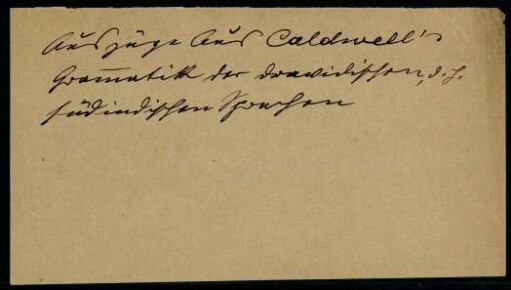 Auszüge aus Caldwell's
Grammatik der dravidischen, d. h.
südindischen Sprachen